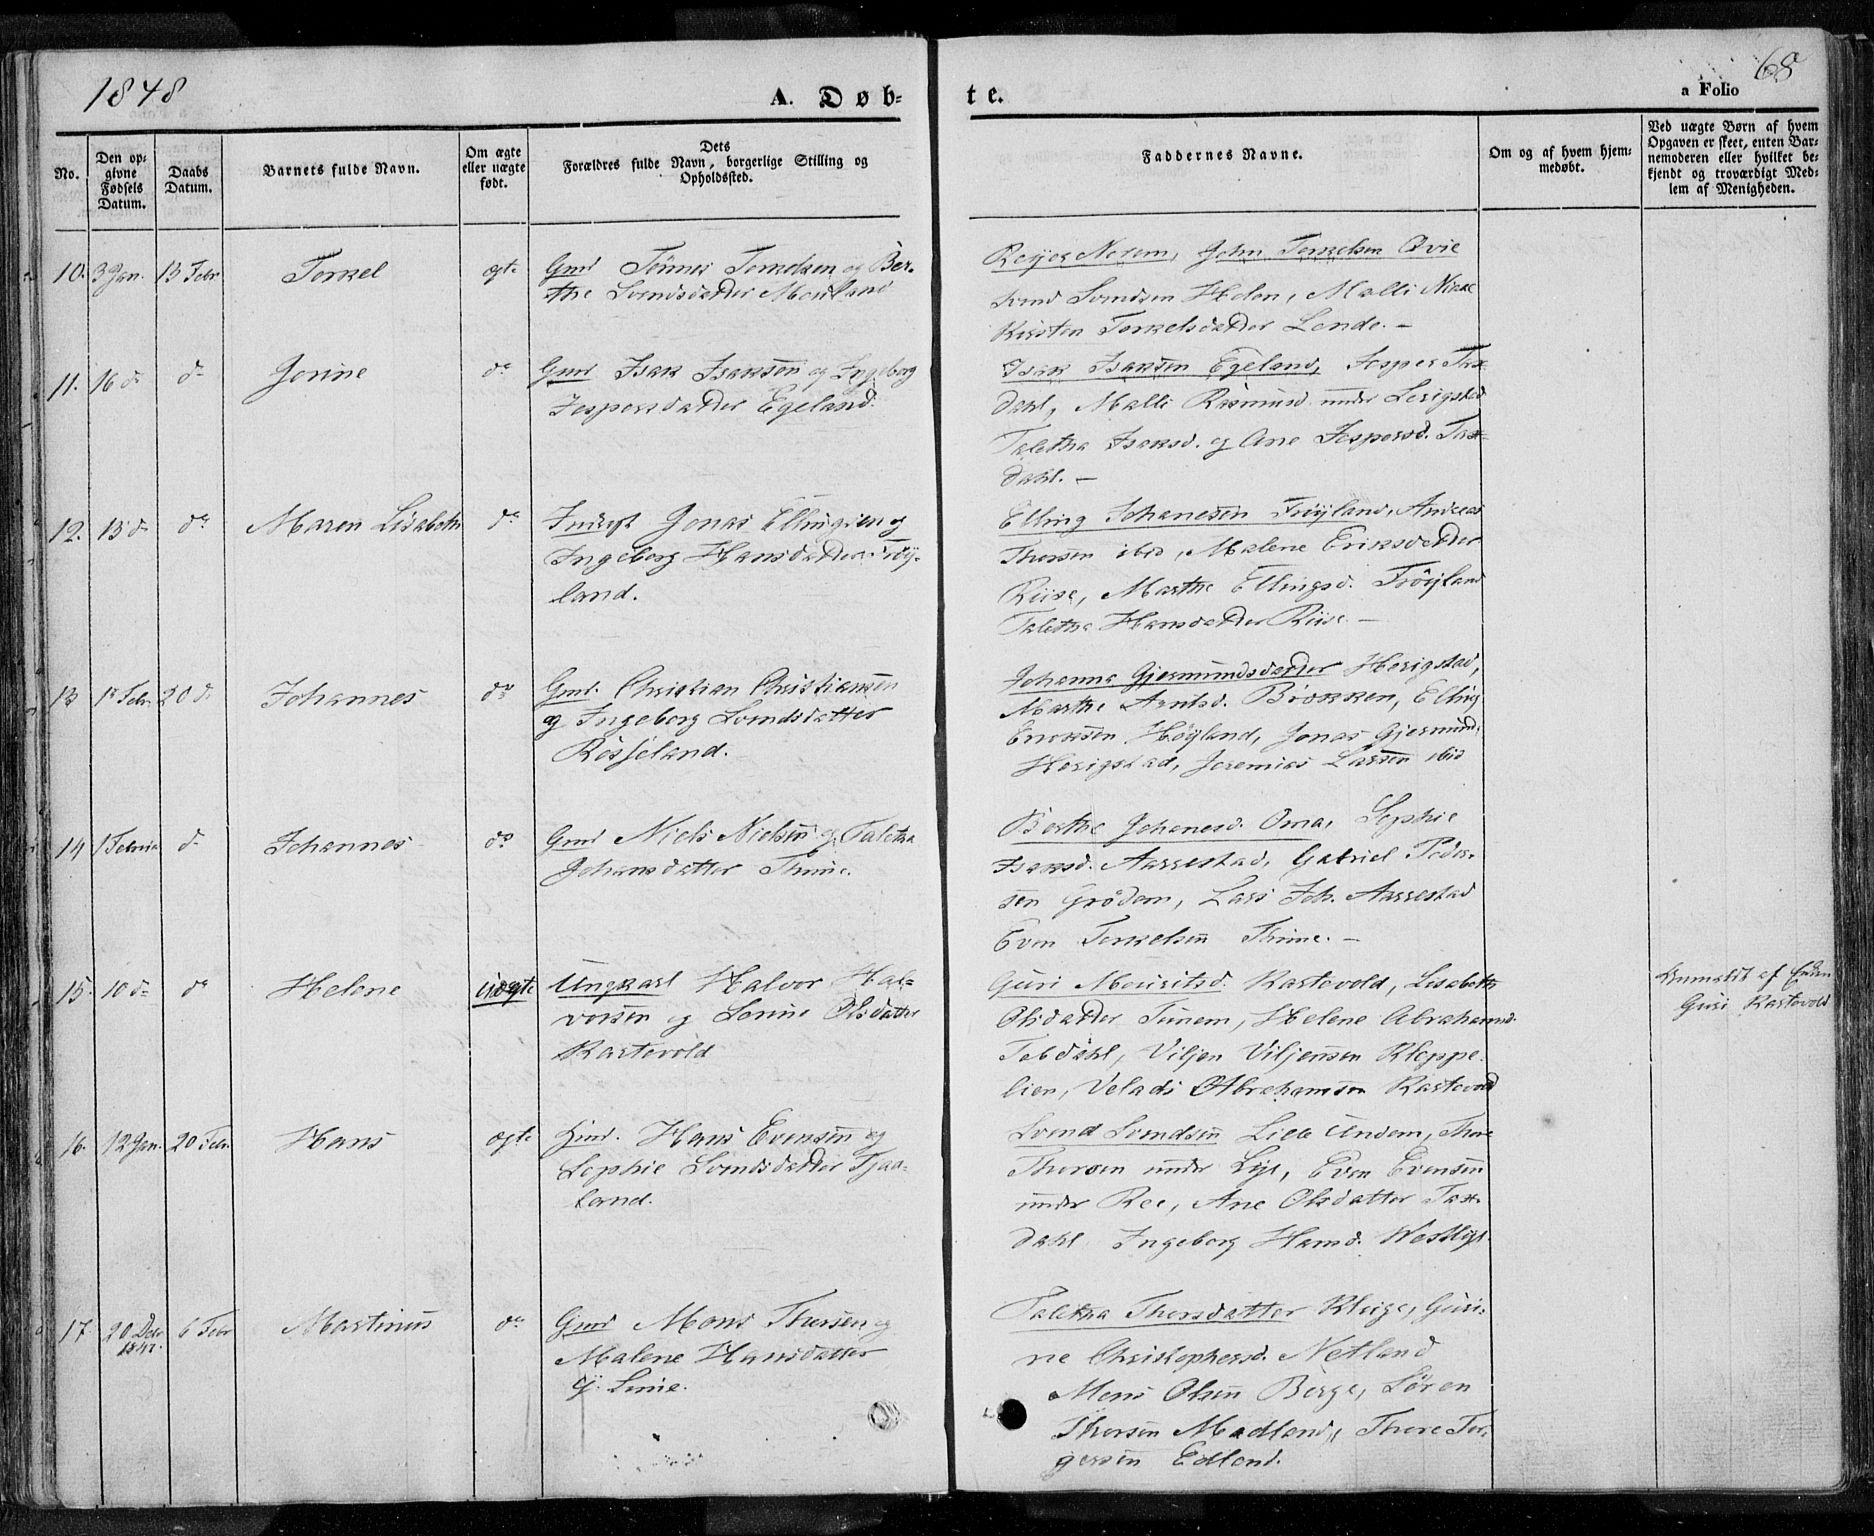 1848
A. Døb-
te.
a Folio
68
No.
Den op-
givne
Fødsels
Datum.
Daabs
Datum.
Barnets fulde Navn.
Om ægte
eller uægte
født.
Dets
Forældres fulde Navn, borgerlige Stilling og
Opholdssted.
Faddernes Navne.
Om og af hvem hjem-
medøbt.
Ved uægte Børn af hvem
Opgaven er skeet, enten Bar-
nemoderen eller hvilket be-
kjendt og troværdigt Med-
lem af Menigheden.
10. 3 Jan. 13 Febr Torkel ægte Gmd Tönnes Torkelsen og Ber-
the Svendsdatter Mouland
Reijer Norem, John Torkelsen Qvie
Svend Svendsen Helen, Malli
Kirsten Torkelsdatter Lende. -
11. 16 d d Jorine do Gmd Isak Isaksen og Ingeborg
Jespersdatter Egeland.
Isak Isaksen Egeland, Jesper Tax-
dahl, Malli Rasmusd. under
Taletha Isaksd. og Ane Jespersd. Tax-
dahl. -
12. 13 d do Maren Lisabeth do Inderst Jonas Ellingsen og
Ingeborg Hansdatter Tröy-
land.
Elling Johanesen Tröyland, Andreas
Thorsen ibid, Malene Eriksdatter
Riise, Marthe Ellingsd. Tröyland
Taletha Hansdatter Riise. -
13 1 Febr. 20 d. Johannes do Gmd. Christian Christiansen
og Ingeborg Svendsdatter
Rosseland.
Johanna Gjermundsdatter Herigstad,
Marthe Arntsd. Brekken, Elling
Eriksen Höyland, Jonas Gjermunds.
Herigstad, Jeremias Larsen ibid
14 1 d Johannes do Gmd Niels Nielsen og Taletha
Johansdatter Thime.
Berthe Johanesd. Oma, Sophie
Isaksd. Aarrestad, Gabriel Peder-
sen Grödem, Lars Joh. Aarrestad
Even Torkelsen Thime. -
15. 10 d do Helene uægte Ungkarl Halvor Hal-
vorsen og Serine Olsdatter
Kartevold
Guri Mouritsd. Kartevold, Lisabeth
Olsdatter Tunem, Helene Abrahamsd.
Tebdahl, Viljen Viljensen Kleppe-
lien, Velads Abrahamsen Kartevold
Anmeldt af Enken
Guri Kartevold
16. 12 Jan. 20 Febr. Hans ægte Hans Evensen og
Sophie Svendsdatter Tjaa-
land.
Svend Svendsen Lille Undem, Thore
Thorsen under Lye, Even Evensen
under Ree, Ane Olsdatter Tax-
dahl Ingeborg Hansd. Westlye.
17 20 Debr
1847. 6 Febr Martinus do Gmd Mons Thorsen og
Malene Hansdatter
y. Lime.
Taletha Thorsdatter Kleige, Guri-
ne Christophersd. Netland
Mons Olsen Berge, Sören
Thorsen Madland, Thore Tor-
gersen Edland.